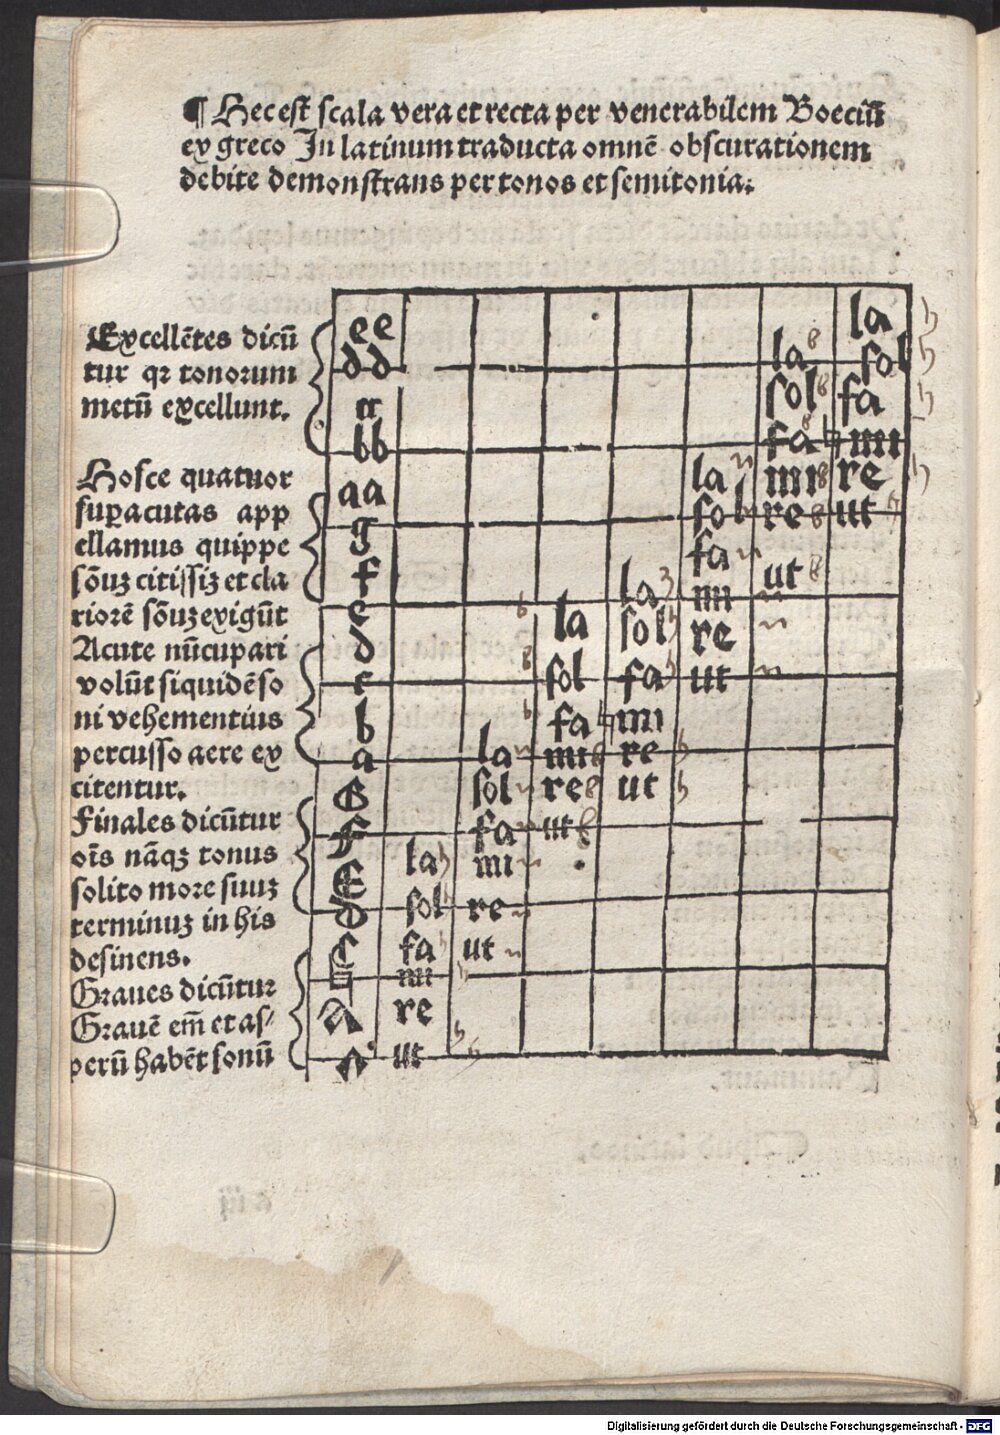 ¶ Hec est scala vera et recta per venerabilem Boeciū
ex greco In latinum traducta omnē obscurationem
debite demonstrans per tonos et semitonia.
Excellētes dicū
tur qꝛ tonorum
metū excellunt.
Hosce quatuor
supacutas app
ellamus quippe
sōuꝫ citissiꝫ et cla
riorē sōuꝫ exigūt
Acute nūcupari
volūt siquidē so
ni vehementius
percusso aere ex
citentur.
Finales dicūtur
oīs nāqꝫ tonus
solito more suuꝫ
terminuꝫ in his
desinens.
Graues dicūtur
Grauē em̄ et as/
perū habēt sonū
ee la
dd la sol
cc sol fa
bb fa ♮ mi
aa la mi re
g sol re ut
f fa ut
e la mi
d la sol re
c sol fa ut
b fa ♮ mi
a la mi re
G sol re ut
F fa ut
E la mi
D sol re
C fa ut
♮ mi
A re
Γ ut
Digitalisierung gefördert durch die Deutsche Forschungsgemeinschaft - DFG